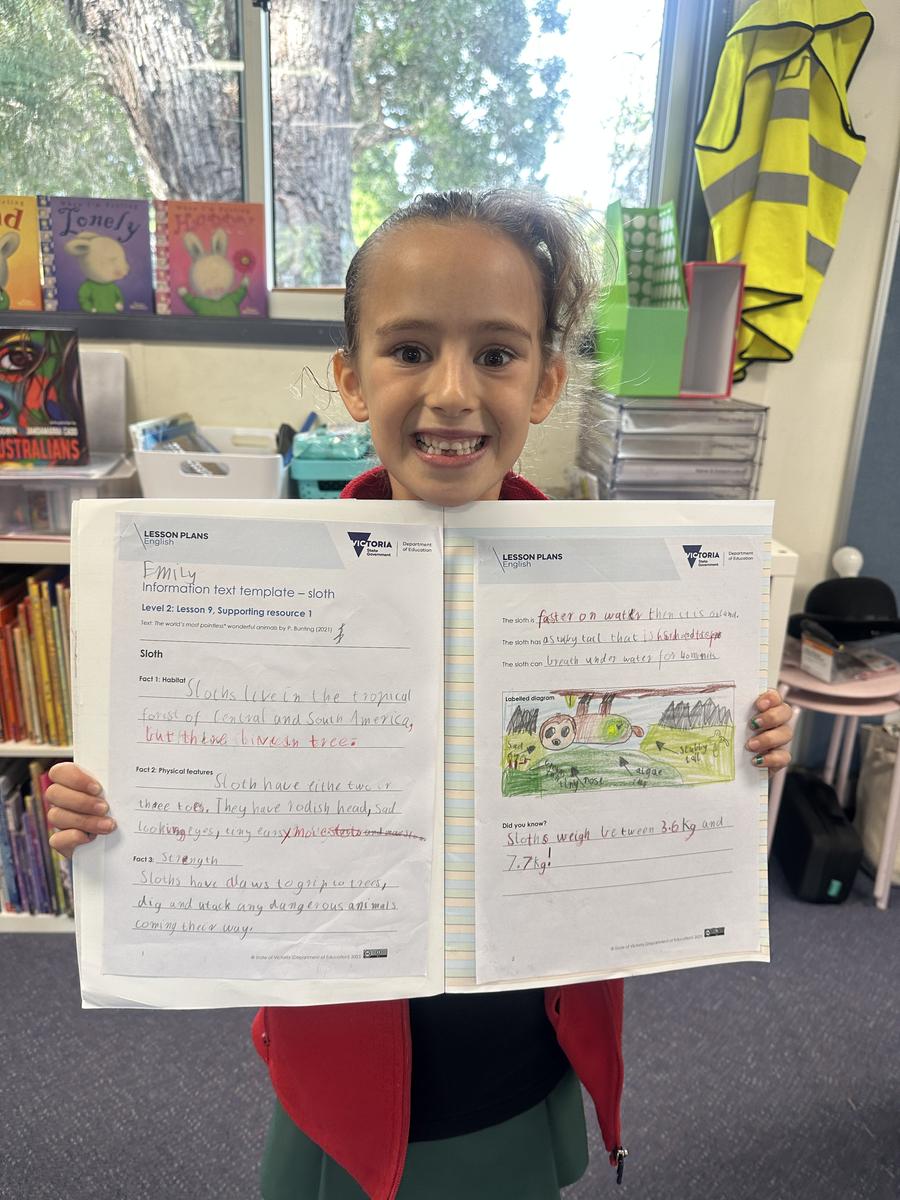 When I'm Feeling
Lonely
When I'm Feeling
Happy
AUSTRALIANS
LESSON PLANS
English
VICTORIA
State
Government
Department
of Education
EMILY
Information text template – sloth
Level 2: Lesson 9, Supporting resource 1
Text: The world's most pointless* wonderful animals by P. Bunting (2021)
Sloth
Fact 1: Habitat
Sloths live in the tropical
forest of Central and South America,
but
live in tree.
Fact 2: Physical features
Sloth have eithe two or
three toes. They have rodish head, sad
looking eyes, tiny ears
Fact 3: Strength
Sloths have claws to grip to trees,
dig and atack any dangerous animals
coming their way.
1
© State of Victoria (Department of Education) 2023
LESSON PLANS
English
VICTORIA
State
Government
Department
of Education
The sloth is faster on water then it is on land.
The sloth has a stuby tail that is
The sloth can breath under water for 40 minits
Labelled diagram
Sad
tiny nose
algae
stubby
tail
Did you know?
Sloths weigh between 3.6kg and
7.7kg!
2
© State of Victoria (Department of Education) 2023